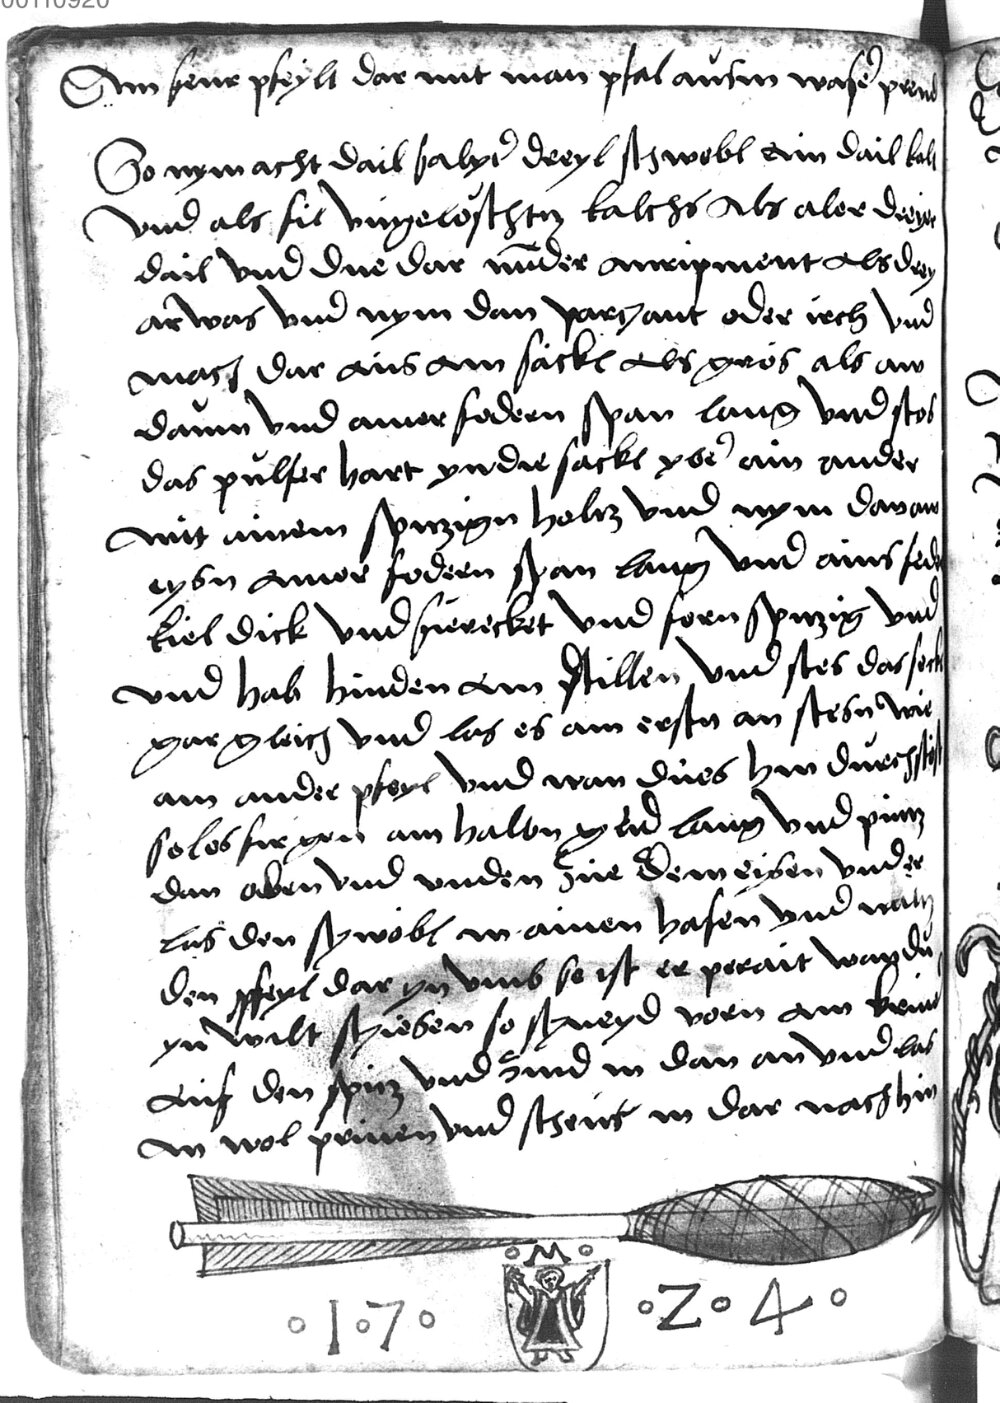 00110920
Ain feur pfeyll dar mit man pfal ausm waser prend
So nym acht dail salpter dreyl schwebl ein dail koll
Vnd als fil Vngeloschtn kalchs Als aler dreyer
dail Vnd due dar Vnder auripment als drey
arwas Vnd nym dan parchant oder irch Vnd
mach dar aus ain säckl als gros als aw
daum Vnd ainer federn span lang Vnd stos
das pulfer hart yn die sackl yber ain ander
mit ainem spiczign holcz Vnd nym dar
eysn ainer federn span lang Vnd ains feder
kiel dick Vnd fierecket Vnd forn spiczig Vnd
Vnd hab hinden ain stillen Vnd stes das seckl
gar gleich Vnd las es am erstn an stesn wie
ain ander pfeyl Vnd wan dues hin durch stost
so los fir gen ain halbn glid lang Vnd pintz
dan oben Vnd Vnden zue dem eysen Vnd er
las den schwebl in ainen hafen Vnd waltz
den pfeyl dar yn Vmb so ist er perait wan du
yn wilt schiesen so schneyd vorn ain
auf den spicz Vnd zind in dan an Vnd las
in wol prinen Vnd scheus in dar nach hin
M
17 24